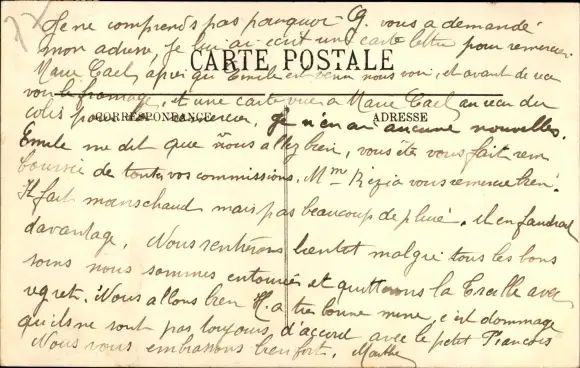 Je ne comprends pas pourquoi G. vous a demandé
mon adresse, je lui ai écrit une carte lettre pour remercier
CARTE POSTALE
Marie après qu'Emile est venu nous voir, et avant de
voir le fromage, et une carte vue à Marie au reçu du
CORRESPONDANCE
ADRESSE
colis pour la remercier, je n'en ai aucune nouvelles.
Emile me dit que vous allez bien, vous êtes vous fait rem
boursée de toutes vos commissions. Mme vous remercie bien.
Il fait moins chaud mais pas beaucoup de pluie, il en faudrait
davantage. Nous rentrerons bientôt malgré tous les bons
soins nous sommes entourées et quitterons la Treille avec
regret. Nous allons bien H. a très bonne mine, c'est dommage
qu'ils ne sont pas toujours d'accord avec le petit François
Nous vous embrassons bien fort, Marthe